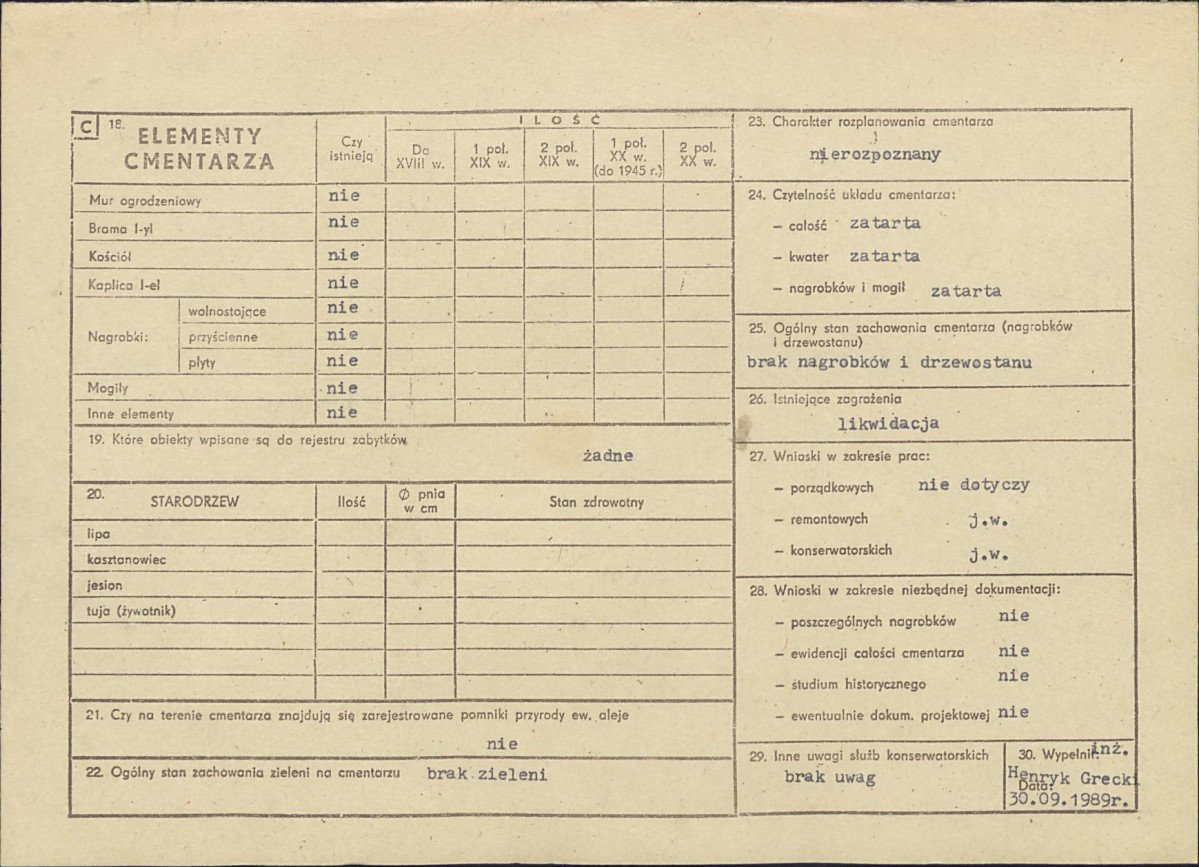 C 18. ELEMENTY CMENTARZA
Czy istnieją
ILOŚĆ
Do XVIII w.
1 poł. XIX w.
2 poł. XIX w.
1 poł. XX w. (do 1945 r.)
2 poł. XX w.
Mur ogrodzeniowy nie
Brama l-yl nie
Kościół nie
Kaplica l-el nie
Nagrobki:
wolnostojące nie
przyścienne nie
płyty nie
Mogiły nie
Inne elementy nie
19. Które obiekty wpisane są do rejestru zabytków
żadne
20. STARODRZEW Ilość Ø pnia w cm Stan zdrowotny
lipa
kasztanowiec
jesion
tuja (żywotnik)
21. Czy na terenie cmentarza znajdują się zarejestrowane pomniki przyrody ew. aleje
nie
22. Ogólny stan zachowania zieleni na cmentarzu brak zieleni
23. Charakter rozplanowania cmentarza
nierozpoznany
24. Czytelność układu cmentarza:
– całość zatarta
– kwater zatarta
– nagrobków i mogił zatarta
25. Ogólny stan zachowania cmentarza (nagrobków
i drzewostanu)
brak nagrobków i drzewostanu
26. Istniejące zagrożenia
likwidacja
27. Wnioski w zakresie prac:
– porządkowych nie dotyczy
– remontowych j.w.
– konserwatorskich j.w.
28. Wnioski w zakresie niezbędnej dokumentacji:
– poszczególnych nagrobków nie
– ewidencji całości cmentarza nie
– studium historycznego nie
– ewentualnie dokum. projektowej nie
29. Inne uwagi służb konserwatorskich
brak uwag
30. Wypełnił: inż.
Henryk Grecki
Data:
30.09.1989r.